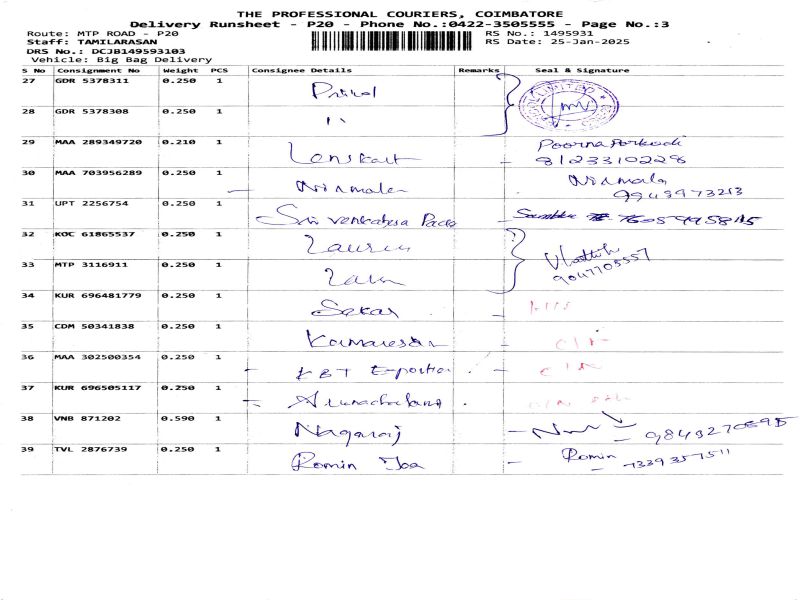 THE PROFESSIONAL COURIERS, COIMBATORE
Delivery Runsheet - P20 - Phone No.:0422-3505555 - Page No.:3
Route: MTP ROAD - P20 RS No.: 1495931
Staff: TAMILARASAN RS Date: 25-Jan-2025
DRS No.: DCJB149593103
Vehicle: Big Bag Delivery
S No Consignment No Weight PCS Consignee Details Remarks Seal & Signature
27 GDR 5378311 0.250 1 Pricol
28 GDR 5378308 0.250 1 "
29 MAA 289349720 0.210 1 Lenskart - Poorna Porkodi
8123310228
30 MAA 703956289 0.250 1 - Nirmala Nirmala
9943973213
31 UPT 2256754 0.250 1 Sri Venkatesa -
32 KOC 61865537 0.250 1
33 MTP 3116911 0.250 1 9047705557
34 KUR 696481779 0.250 1 Sekar -
35 CDM 50341838 0.250 1 Kumaresan -
36 MAA 302500354 0.250 1 - KBT -
37 KUR 696505117 0.250 1 - Arunachalam
38 VNB 871202 0.590 1 Nagaraj - 9843270695
39 TVL 2876739 0.250 1 Romin - Romin
- 7339357511